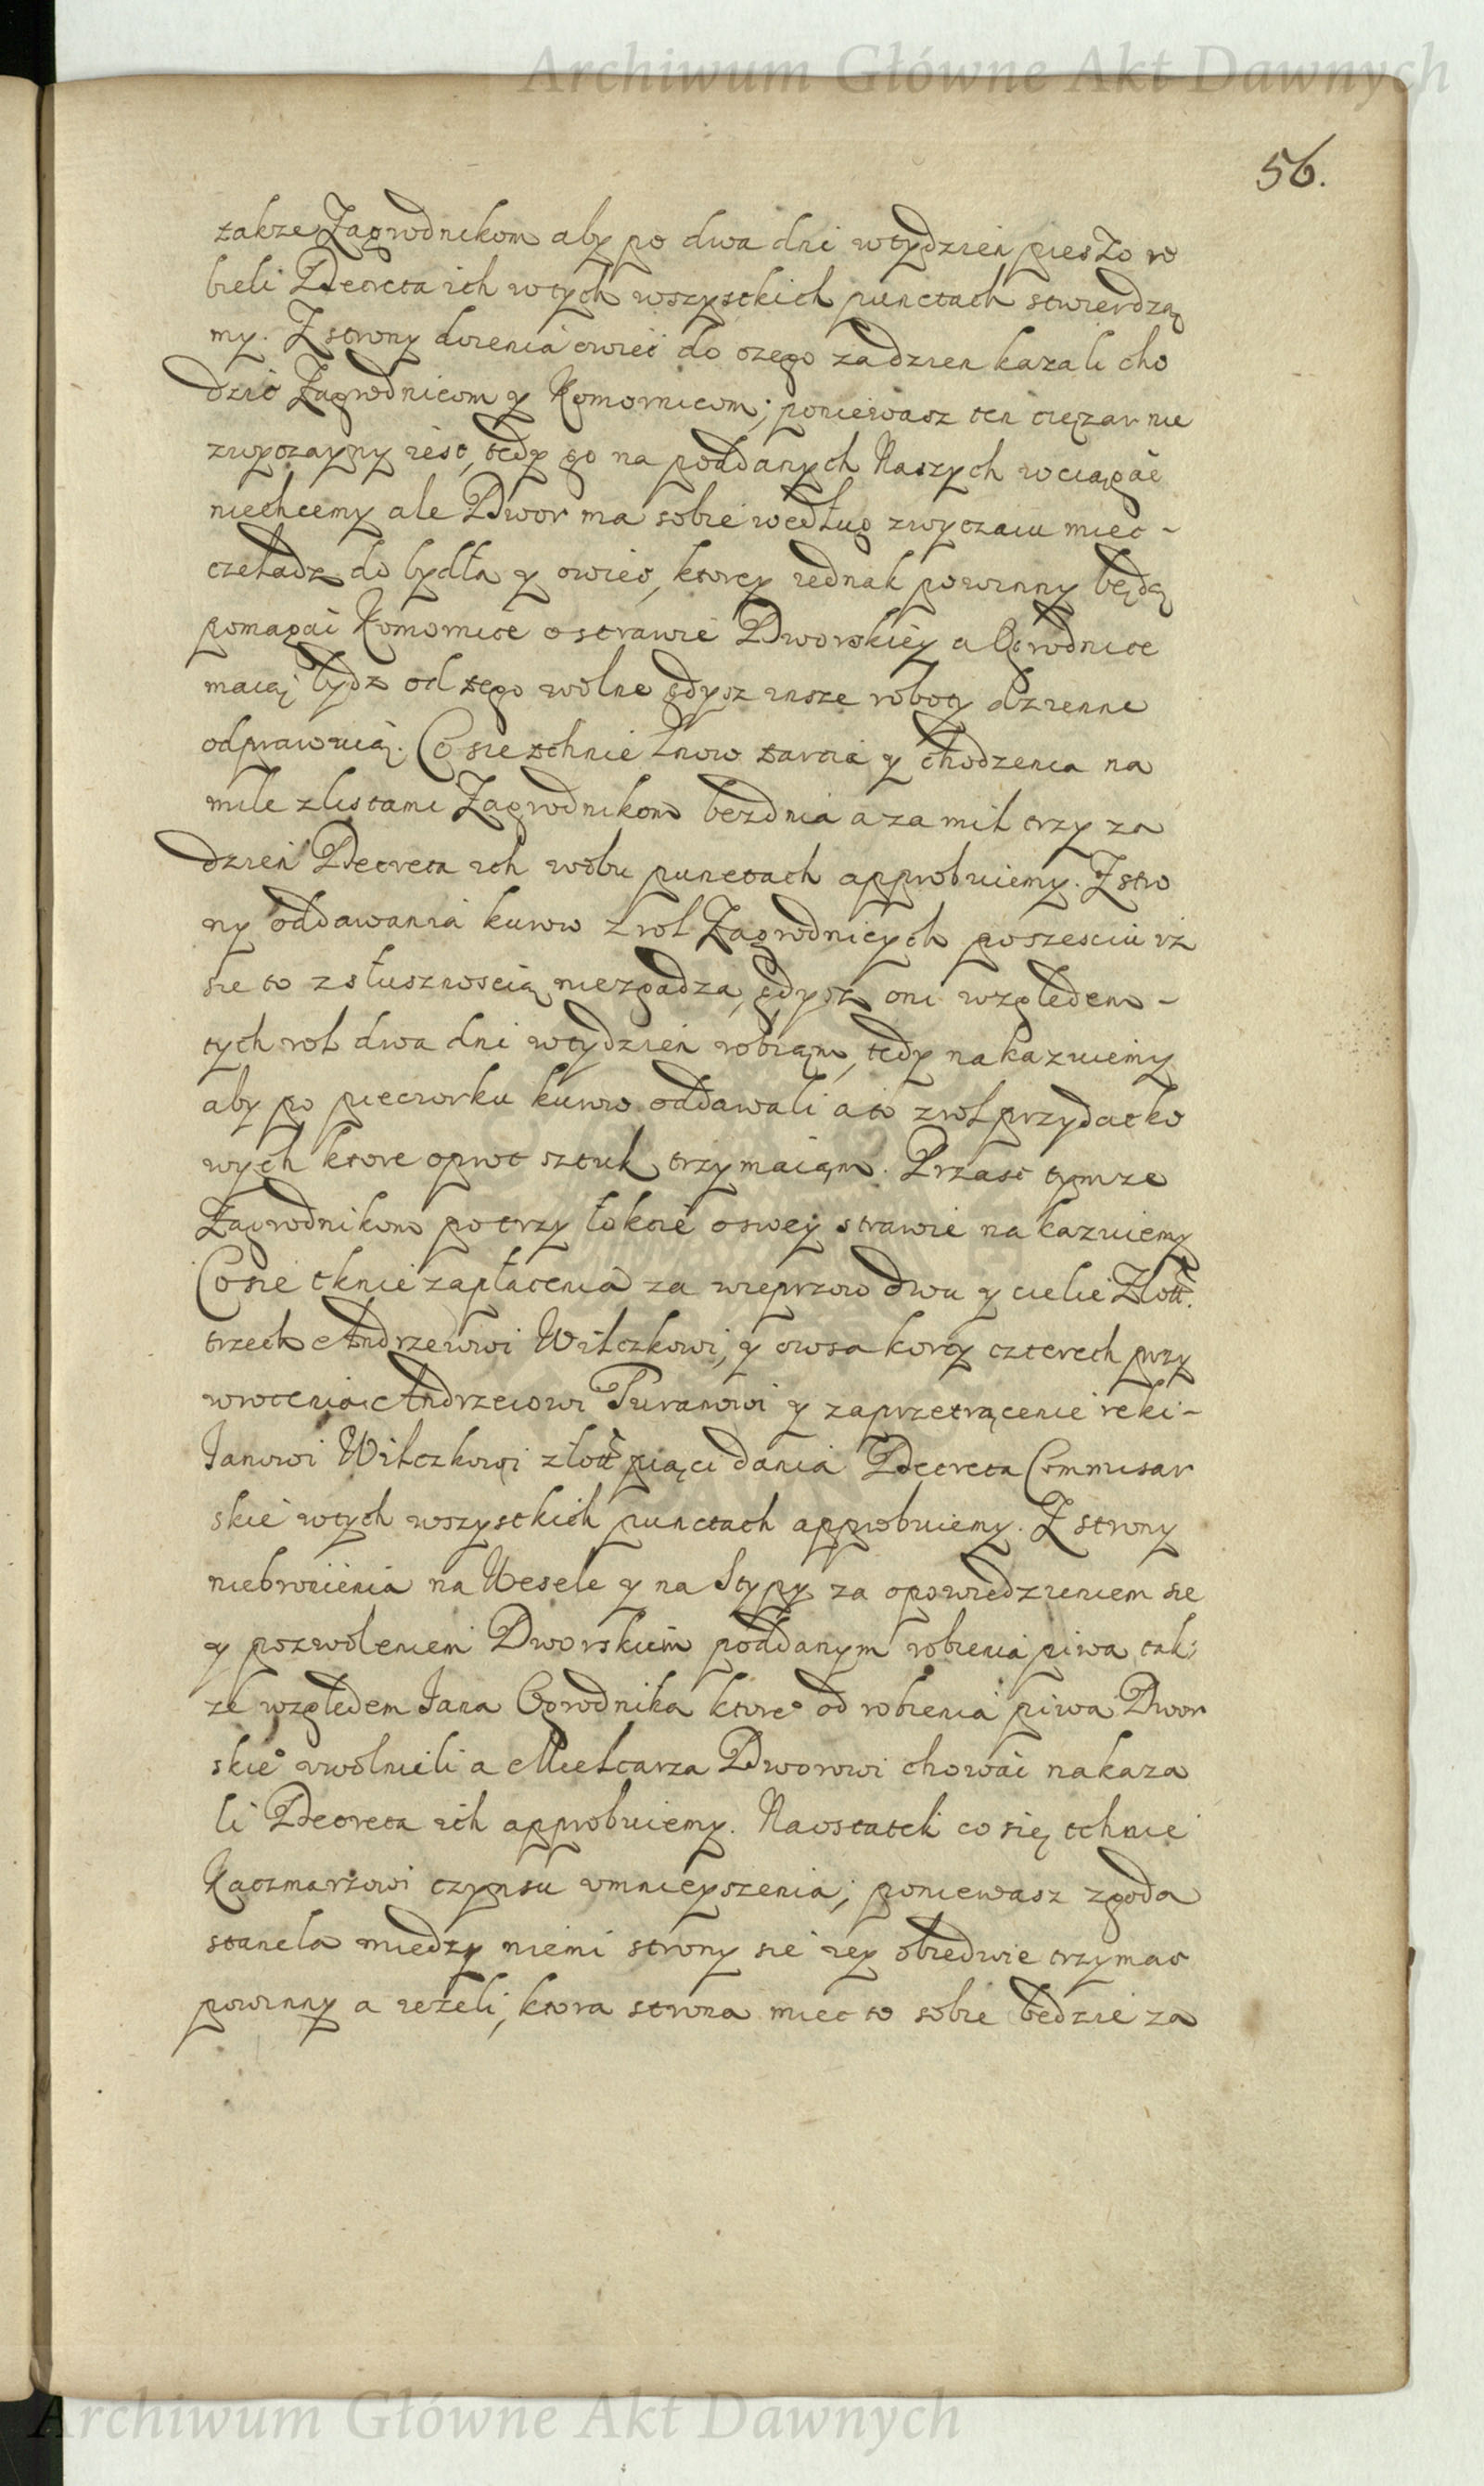 Archiwum Główne Akt Dawnych
56.
takze Zagrodnikom aby po dwa dni wtydzien pieszo ro
bieli Decreta ich wtych wszystkich punctach stwierdzą
my. Z strony doienia owiec do czego zadzien kazali cho
dzić Zagrodnicom y Komornicom; poniewasz ten cięzar nie
zwyczayny iest, tedy go na poddanych Naszych wciągać
niechcemy ale Dwor ma sobie według zwyczaiu miec -
czeladz do bydła y owiec, ktorey iednak powinny będą
pomagać Komornice o strawie Dworskiey a Ogrodnice
maią bydz od tego wolne gdysz insze roboty dzienne
odprawuią. Co sie tchnie Lnow tarcia y chodzenia na
mile zlistami Zagrodnikom bezdnia a za mil trzy za
dzien Decreta ich wobu punctach approbuiemy. Z stro
ny oddawania kurow z rol Zagrodnicych poszesciu iz
sie to z słusznoscią niezgadza, gdysz oni względem -
tych rol dwa dni wtydzien robiąm, tedy nakazuiemy
aby po pieciorku kurow oddawali a to z rol przydatko
wych ktore oproc sztuk trzymaiąm. Przasc tymze
Zagrodnikom po trzy łokcie o swey strawie nakazuiemy
Co sie tknie zapłacenia za wieprzow dwu y cielie Złott.
trzech Andrzeiowi Wilczkowi, y owsa korcy czterech przy
wrocenia Andrzeiowi Turanowi y zaprzetrącenie ręki -
Janowi Wilczkowi złott piąci dania Decreta Commisar
skie wtych wszystkich punctach approbuiemy. Z strony
niebronienia na Wesele y na Stypy za opowiedzieniem sie
y pozwoleniem Dworskiem poddanym robienia piwa tak
ze względem Jana Ogrodnika ktore° od robienia piwa Dwor
skie° uwolnili a Mielcarza Dworowi chować nakaza
li Decreta ich approbuiemy. Naostatek co się tchnie
Kaczmarzowi czynsu umnieyszenia; poniewasz zgoda
stanela miedzy niemi strony sie iey obiedwie trzymac
powinny a iezeli, ktora strona miec to sobie będzie za
Archiwum Główne Akt Dawnych